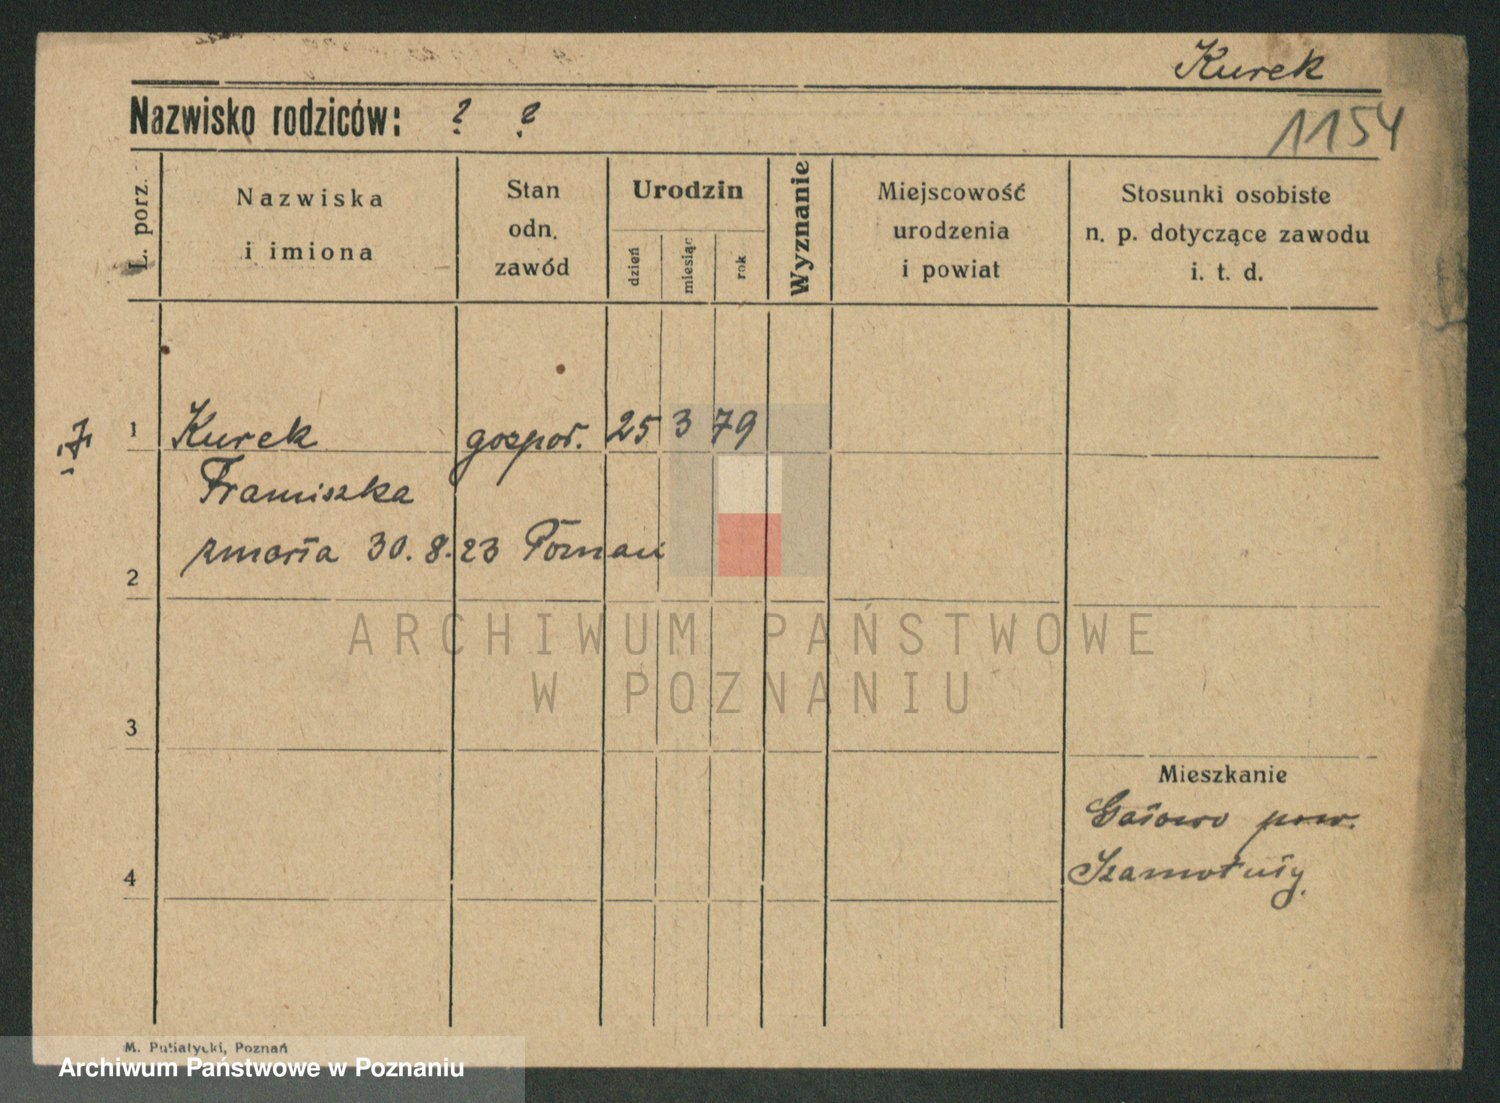 Kurek
1154
Nazwisko rodziców: ? ?
L. porz.
Nazwiska
i imiona
Stan
odn.
zawód
Urodzin
dzień
miesiąc
rok
Wyznanie
Miejscowość
urodzenia
i powiat
Stosunki osobiste
n. p. dotyczące zawodu
i. t. d.
1 Kurek gospod. 25 3 79
Franciszka
zmarła 30. 8. 23 Poznań
2
ARCHIWUM PAŃSTWOWE
W POZNANIU
3
Mieszkanie
pow.
Szamotuły.
4
M. Putiatycki, Poznań
Archiwum Państwowe w Poznaniu